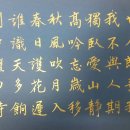 我不與人期
獨臥愛山靜
高吟忘歲移
秋風吹月入
春日護花遲
誰識天多餉